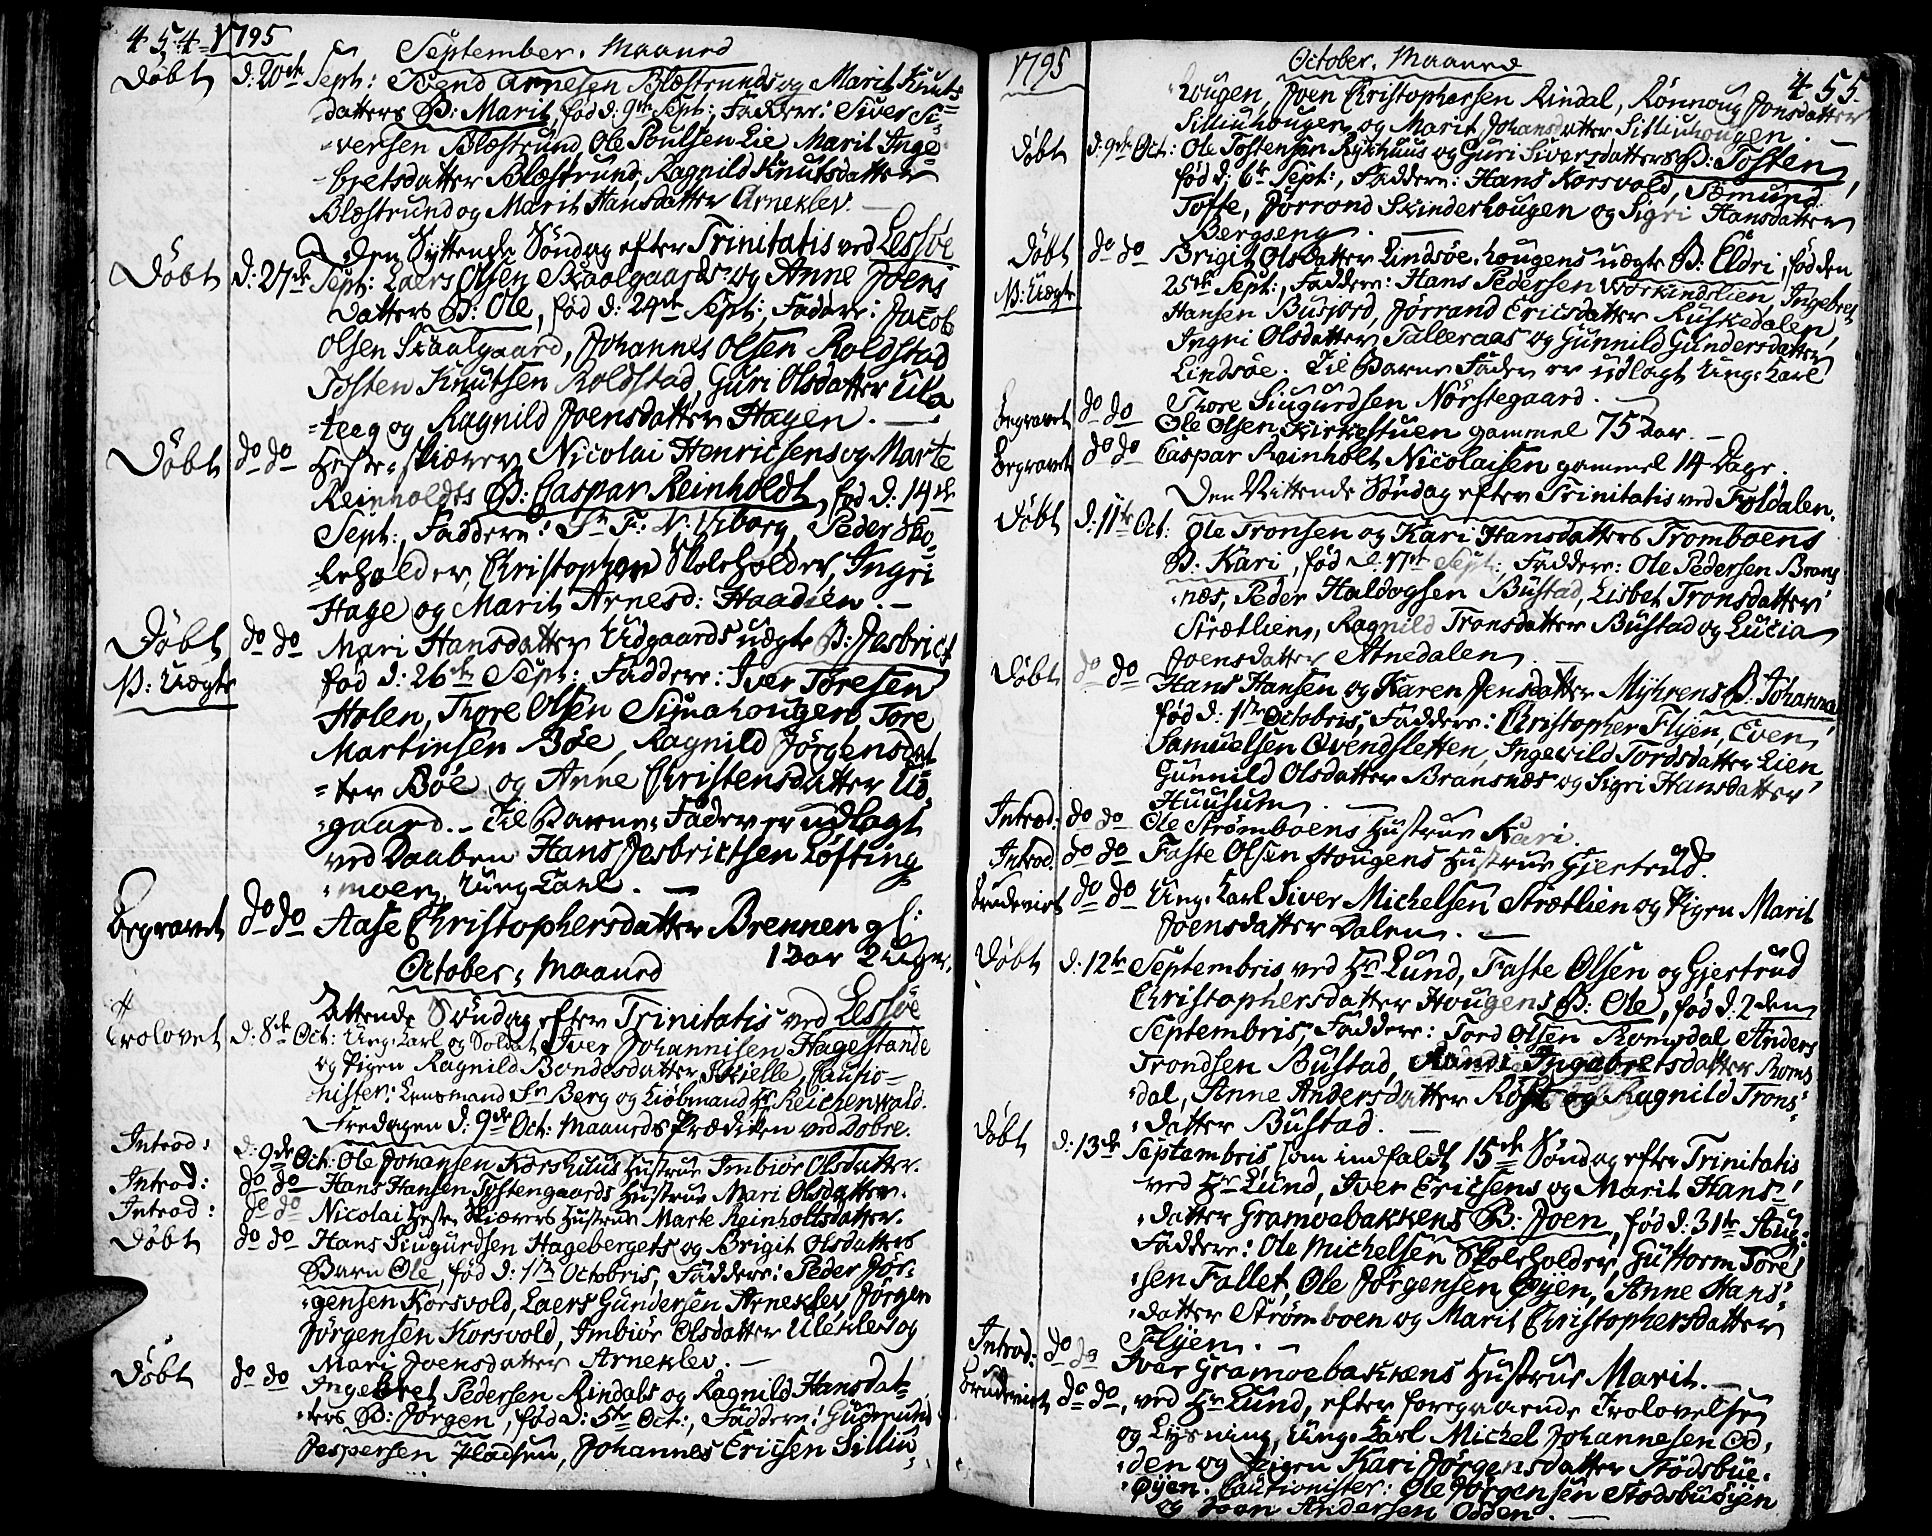 454 1795
September Maaned
Døbt d: 20de Sept: Svend Arnesen Blæstrunds og Marit Knuts
datters B: Marit, fød d: 9de Sept: Faddere: Siver Si-
versen Blæstrund, Ole Poulsen Lie, Marit Inge-
bretsdatter Blæstrund, Ragnild Knutsdatter
Blæstrund og Marit Hansdatter Arneklev. –
Den Syttende Søndag efter Trinitatis ved Lessøe
Døbt d: 27de Sept: Laers Olsen Skaalgaards og Anne Joens
datters B: Ole, fød d: 24de Sept:, Faddere: Jacob
Olsen Skaalgaard, Johannes Olsen Roldstad
Tosten Knutsen Roldstad, Guri Olsdatter Ula
teeg og Ragnild Joensdatter Hagen. –
Døbt do do Heste-skiærer Nicolai Henricsens og Marte
Reinholdts B: Caspar Reinholdt, fød d: 14de
Sept:, Faddere: Sr F: N: Wiborg, Peder Sko-
leholder, Christopher Skoleholder, Ingri
Hage og Marit Arnesd: Haadien. –
Døbt do do Mari Hansdatter Udgaards uægte B: Jesbrict
N: Uægte fød d: 26de Sept:, Faddere: Iver Toresen
Holen, Thore Olsen Simahougen, Tore
Martinsen Bøe, Ragnild Jørgensdat
ter Bøe og Anne Christensdatter Ud-
gaard. – Til Barne-Fader er udlagt
ved Daaben Hans Jesbrictsen Løfting
moen, Ung Carl. –
Begravet do do Aase Christophersdatter Brennen gl:
1 Aar 2 Uger.
October Maaned
Attende Søndag efter Trinitatis ved Lessøe
Trolovet d: 8de Oct: Ung-Karl og Soldat Iver Johannisen Hagestande
og Pigen Ragnild Bondesdatter Skielle, Cautio-
nister: Lensmand Sr Berg og Kiøbmand Hr Reichenwald.
Fredagen d: 9de Oct: Maaneds Prædiken ved Dobre.
Introd: d: 9de Oct: Ole Johansen Korshuus Hustrue Imbiør Olsdatter.
Introd: do do Hans Hansen Tostengaards Hustrue Mari Olsdatter.
Introd: do do Nicolai Heste-Skiærers Hustrue Marte Reinholtsdatter.
Døbt do do Hans Siugurdsen Hagebergets og Brigit Olsdatters
Barn Ole, fød d: 1ste Octobris, Faddere: Peder Jør-
gensen Korsvold, Laers Gundersen Arneklev, Jørgen
Jørgensen Korsvold, Imbiør Olsdatter Uleklev og
Mari Joensdatter Arneklev. –
Døbt do do Ingebret Pedersen Rindals og Ragnild Hansdat-
ters B: Jørgen, fød d: 5te Oct:, Faddere: Gudmund
Jespersen Pladsen, Johannes Ericsen Silliu-
1795 October Maaned 455
hougen, Joen Christophersen Rindal, Rønnoug Jonsdatter
Silliuhougen og Marit Johansdatter Silliuhougen.
Døbt d: 9de Oct: Ole Tostensen Rykhuus og Guri Siversdatters B: Tosten,
fød d: 6te Sept:, Faddere: Hans Korsvold, Romund
Tofte, Jørrond Skinderhougen og Sigri Hansdatter
Bergseng.
Døbt do do Brigit Olsdatter Lindsøe-hougens uægte B: Eldri, fød den
N: Uægte 25de Sept:, Faddere: Hans Pedersen Workindslien, Ingebret
Hansen Busjord, Jørrand Ericsdatter Ruskedalen,
Ingri Olsdatter Talleraas og Gunnild Gundersdatter
Lindsøe. Til Barne Fader er udlagt Ung-Carl
Thore Siugurdsen Nørstegaard.
Begravet do do Ole Olsen Kirkestuen gammel 75 Aar. –
Begravet do do Caspar Reinholt Nicolaisen gammel 14 Dage.
Den Nittende Søndag efter Trinitatis ved Foldalen.
Døbt d: 11te Oct: Ole Tronsen og Kari Hansdatters Tromboens
B. Kari, fød d: 17de Sept:, Faddere: Ole Pedersen Brans
næs, Peder Haldogsen Bustad, Lisbet Tronsdatter
Strætlien, Ragnild Tronsdatter Bustad og Lucia
Joensdatter Atnedalen. –
Døbt do do Hans Hansen og Karen Jensdatter Myhrens B: Johanna,
fød d: 1ste Octobris, Faddere: Christopher Flyen, Even
Samuelsen Øvendsletten, Ingevild Tordsdatter Lien,
Gunnild Olsdatter Bransnæs og Sigri Hansdatter
Huusum. –
Introd: do do Ole Strømboens Hustrue Kari.
Introd: do do Faste Olsen Hougens Hustrue Giertrud.
Brudeviet do do Ung-Karl Siver Michelsen Strætlien og Pigen Marit
Joensdatter Dalen. –
Døbt d: 12te Septembris ved Hr Lund, Faste Olsen og Gjertrud
Christophersdatter Hougens B: Ole, fød d: 2den
Septembris, Faddere: Tord Olsen Romsdal, Anders
Trondsen Bustad, Randi Ingebretsdatter Roms
dal, Anne Andersdatter Røst og Ragnild Trons-
datter Bustad. –
Døbt d: 13de Septembris som indfaldt 15de Søndag efter Trinitatis
ved Hr Lund, Iver Ericsens og Marit Hans-
datter Gramoebakkens B: Joen, fød d: 31te Aug:
Faddere: Ole Michelsen Skoleholder, Guttorm Tore-
sen Fallet, Ole Jørgensen Øyen, Anne Hans-
datter Strømboen og Marit Christophersdatter
Flyen. –
Introd: do do Iver Gramoebakkens Hustrue Marit. –
Brudeviet do do, ved Hr Lund, efter foregaaende Trolovelse
og Lysning, Ung-Karl Michel Johannesen Od-
den og Pigen Kari Jørgensdatter Stødsbue-
øyen. Cautionister: Ole Jørgensen Stodsbuøyen
og Joen Andersen Odden. –